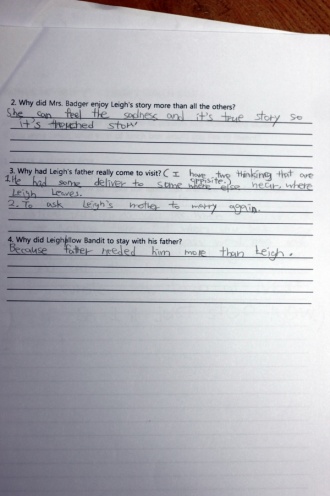 2. Why did Mrs. Badger enjoy Leigh's story more than all the others?
She can feel the sadness and it's true story so
it's touched story
3. Why had Leigh's father really come to visit? ( I have two thinking that are
opposite.)
1. He had some deliver to some where else near, where
Leigh Leaves.
2. To ask Leigh's mother to marry again.
4. Why did Leigh allow Bandit to stay with his father?
Because father needed him more than Leigh.